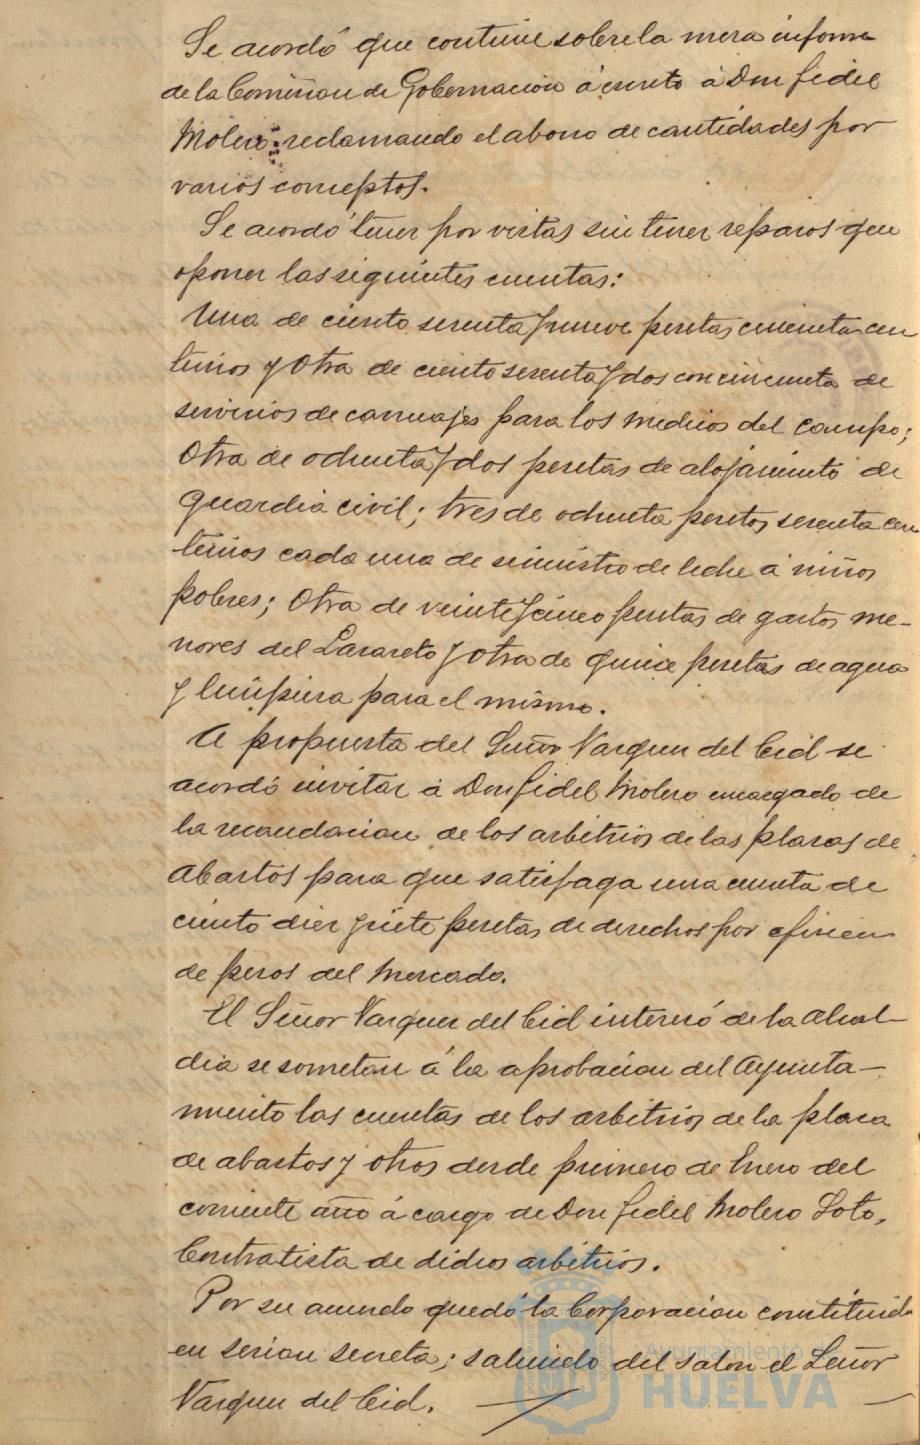 Se acordó que continue sobre la mesa informe
de la Comision de Gobernacion á escrito á Don Fidel
Molero reclamando el abono de cantidades por
varios conceptos.
Se acordó tener por vistas sin tener reparos que
oponer las siguientes cuentas:
Una de ciento sesenta y nueve pesetas cincuenta cen
timos y otra de ciento sesenta y dos con cincuenta de
servicios de carruajes para los medicos del campo;
otra de ochenta y dos pesetas de alojamiento de
guardia civil; tres de ochenta pesetas sesenta cen
timos cada una de suministro de leche á niños
pobres; otra de veinte y cinco pesetas de gastos me-
nores del Lazareto y otra de quince pesetas de agua
y limpieza para el mismo.
A propuesta del Señor Vazquez del Cid se
acordó invitar á Don Fidel Molero encargado de
la recaudacion de los arbitrios de las plazas de
abastos para que satisfaga una cuenta de
ciento diez y siete pesetas de derechos por
de pesos del mercado.
El Señor Vazquez del Cid interesó de la Alcal-
dia se sometan á la aprobacion del Ayunta-
miento las cuentas de los arbitrios de la plaza
de abastos y otros desde primero de Enero del
corriente año á cargo de Don Fidel Molero Soto,
Contratista de dichos arbitrios.
Por su acuerdo quedó la Corporacion constituida
en sesion secreta; saliendo del salon el Señor
Vazquez del Cid.
Ayuntamiento de
HUELVA